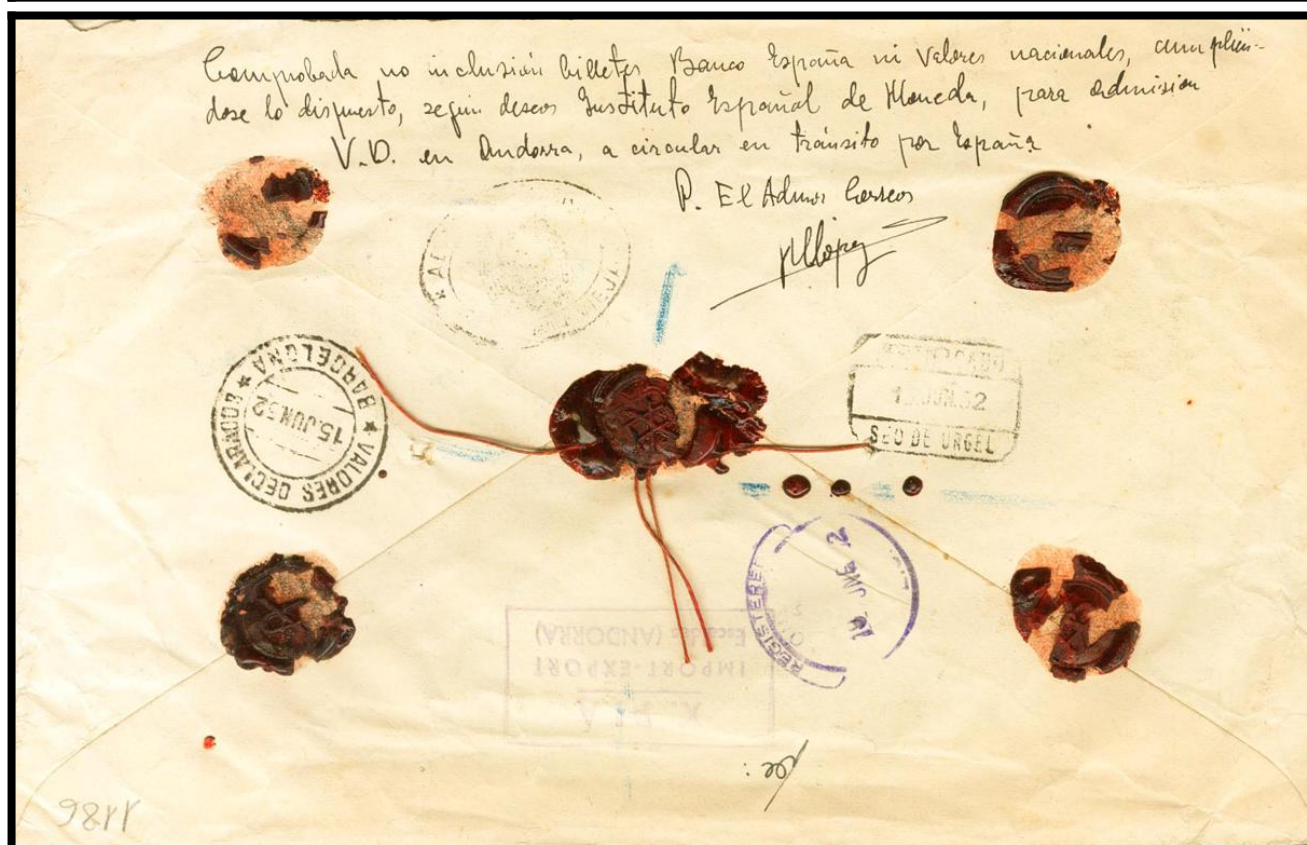 Comprobada no inclusión billetes Banco España ni Valores nacionales, cumplién-
dose lo dispuesto, según deseos Instituto Español de Moneda, para admision
V.D. en Andorra, a circular en tránsito por España
P. El Admor Correos
MLópez
★ VALORES DECLARADOS ★ BARCELONA
15.JUN.52
JUN.52
SEO DE URGEL
REGISTERED
JUN
X. PLA
IMPORT-EXPORT
(ANDORRA)